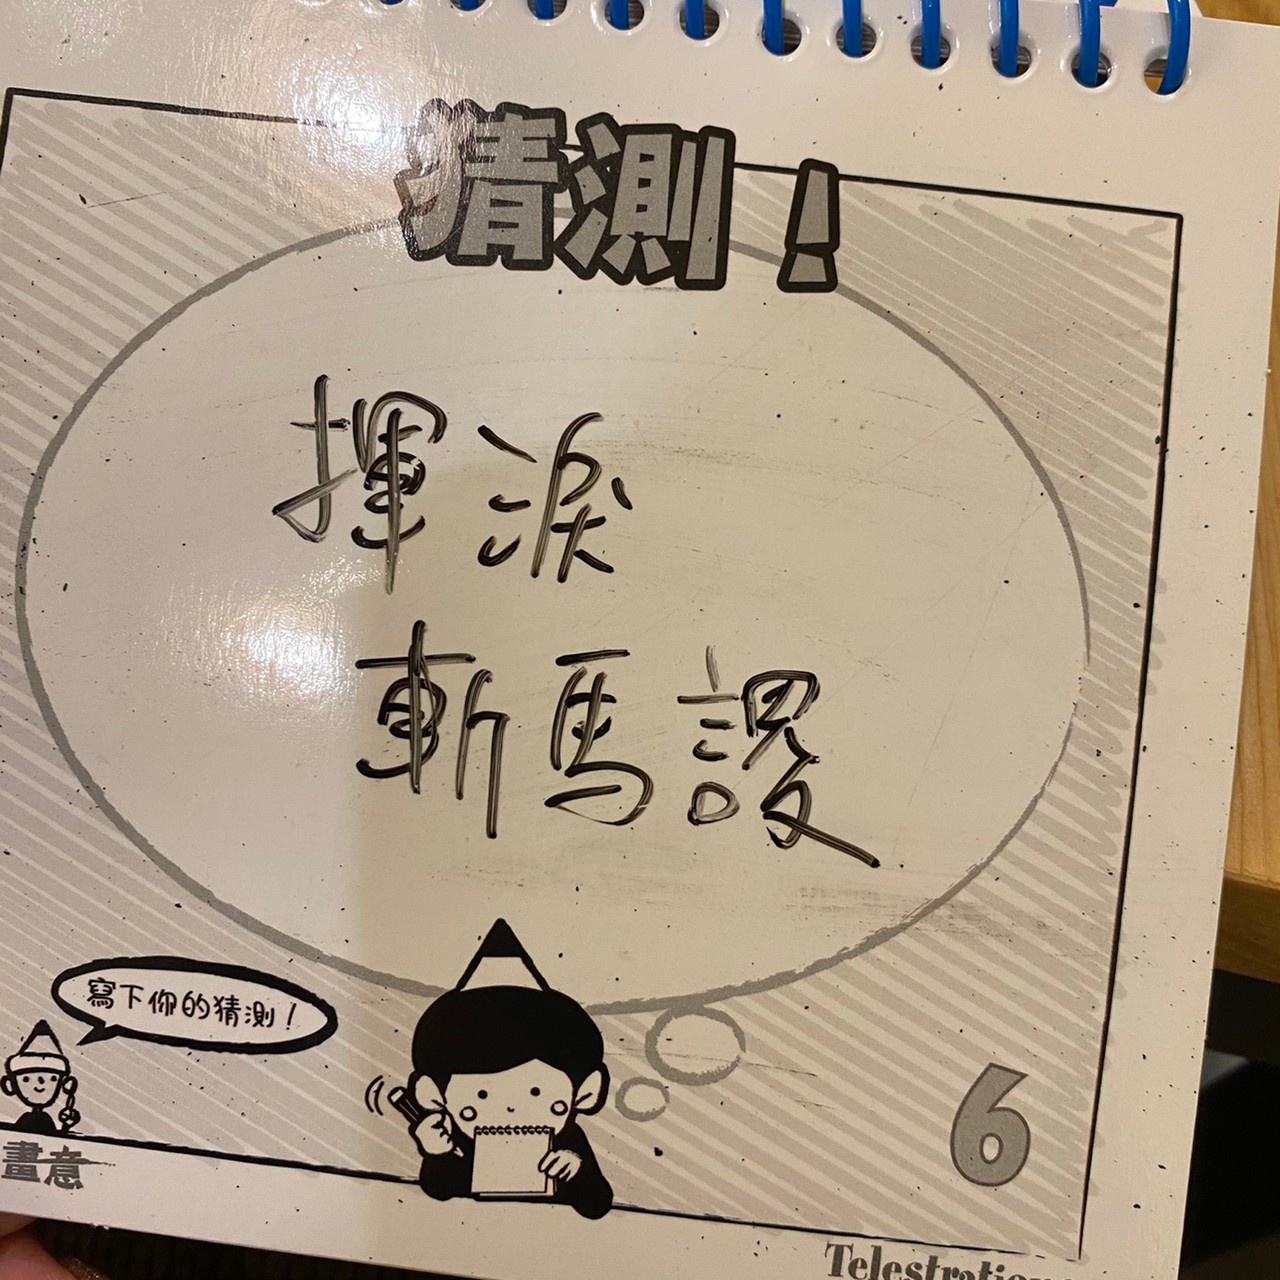 猜測！
揮淚
斬馬謖
寫下你的猜測！
6
畫意